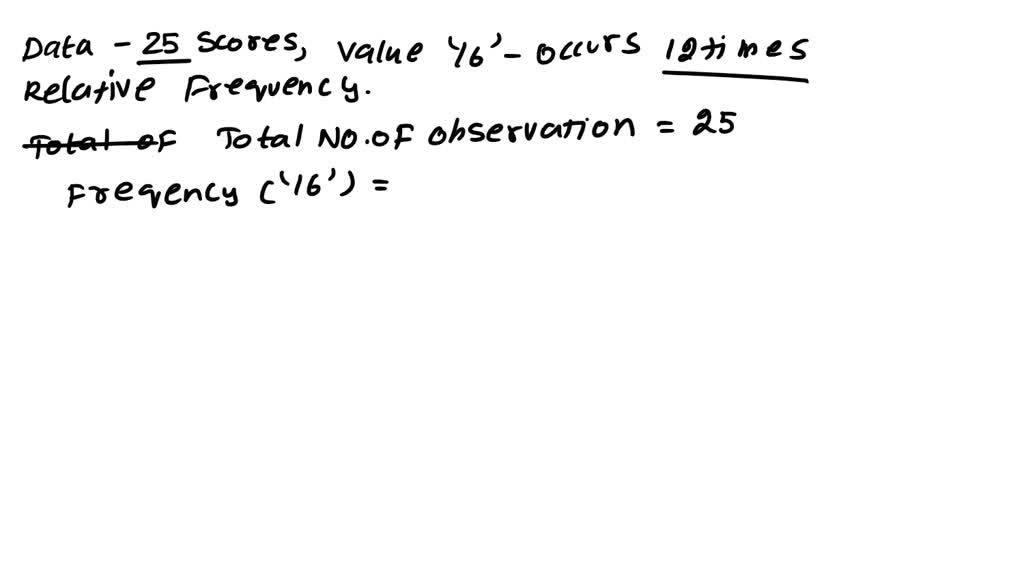 Data - 25 Scores, Value '16' - Occurs 12 times
Relative Frequency.
Total of Total No. of observation = 25
Freqency ('16') =